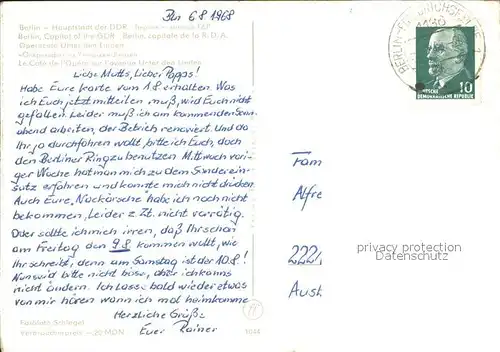 Bln 6 8 1968
Berlin - Hauptstadt der DDR
Berlin, Capital of the GDR Berlin, capitale de la R.D.A.
Operncafé Unter den Linden
Le Café de l'Opéra sur l'avenue Unter den Linden
Liebe Mutts, Lieber Papps!
Habe Eure Karte vom 1.8 erhalten. Was
ich Euch jetzt mitteilen muß, wird Euch nicht
gefallen. Leider muß ich am kommenden Sonn-
abend arbeiten, der Betrieb renoviert. Und da
Ihr ja durchfahren wollt, bitte ich Euch, doch
den Berliner Ring zu benutzen. Mittwoch vori-
ger Woche hat man mich zu dem Sonderein-
satz erfahren und konnte mich nicht drücken.
Auch Eure Nackärsche habe ich noch nicht
bekommen, Leider z. Zt. nicht vorrätig.
Oder sollte ich mich irren, daß Ihr schon
am Freitag den 9.8 kommen wollt, wie
Ihr schreibt, denn am Samstag ist der 10.8!
Nun seid bitte nicht böse, aber ich kann's
nicht ändern. Ich lasse bald wieder etwas
von mir hören wann ich mal heimkomme
Herzliche Grüße
Euer Rainer
BERLIN-FRIEDRICHSFELDE 1
1130
10
DEUTSCHE
DEMOKRATISCHE REPUBLIK
Fam
Alfre
222
Aust
privacy protection
Datenschutz
Farbfoto: Schlegel
Verbraucherpreis -,20 MDN